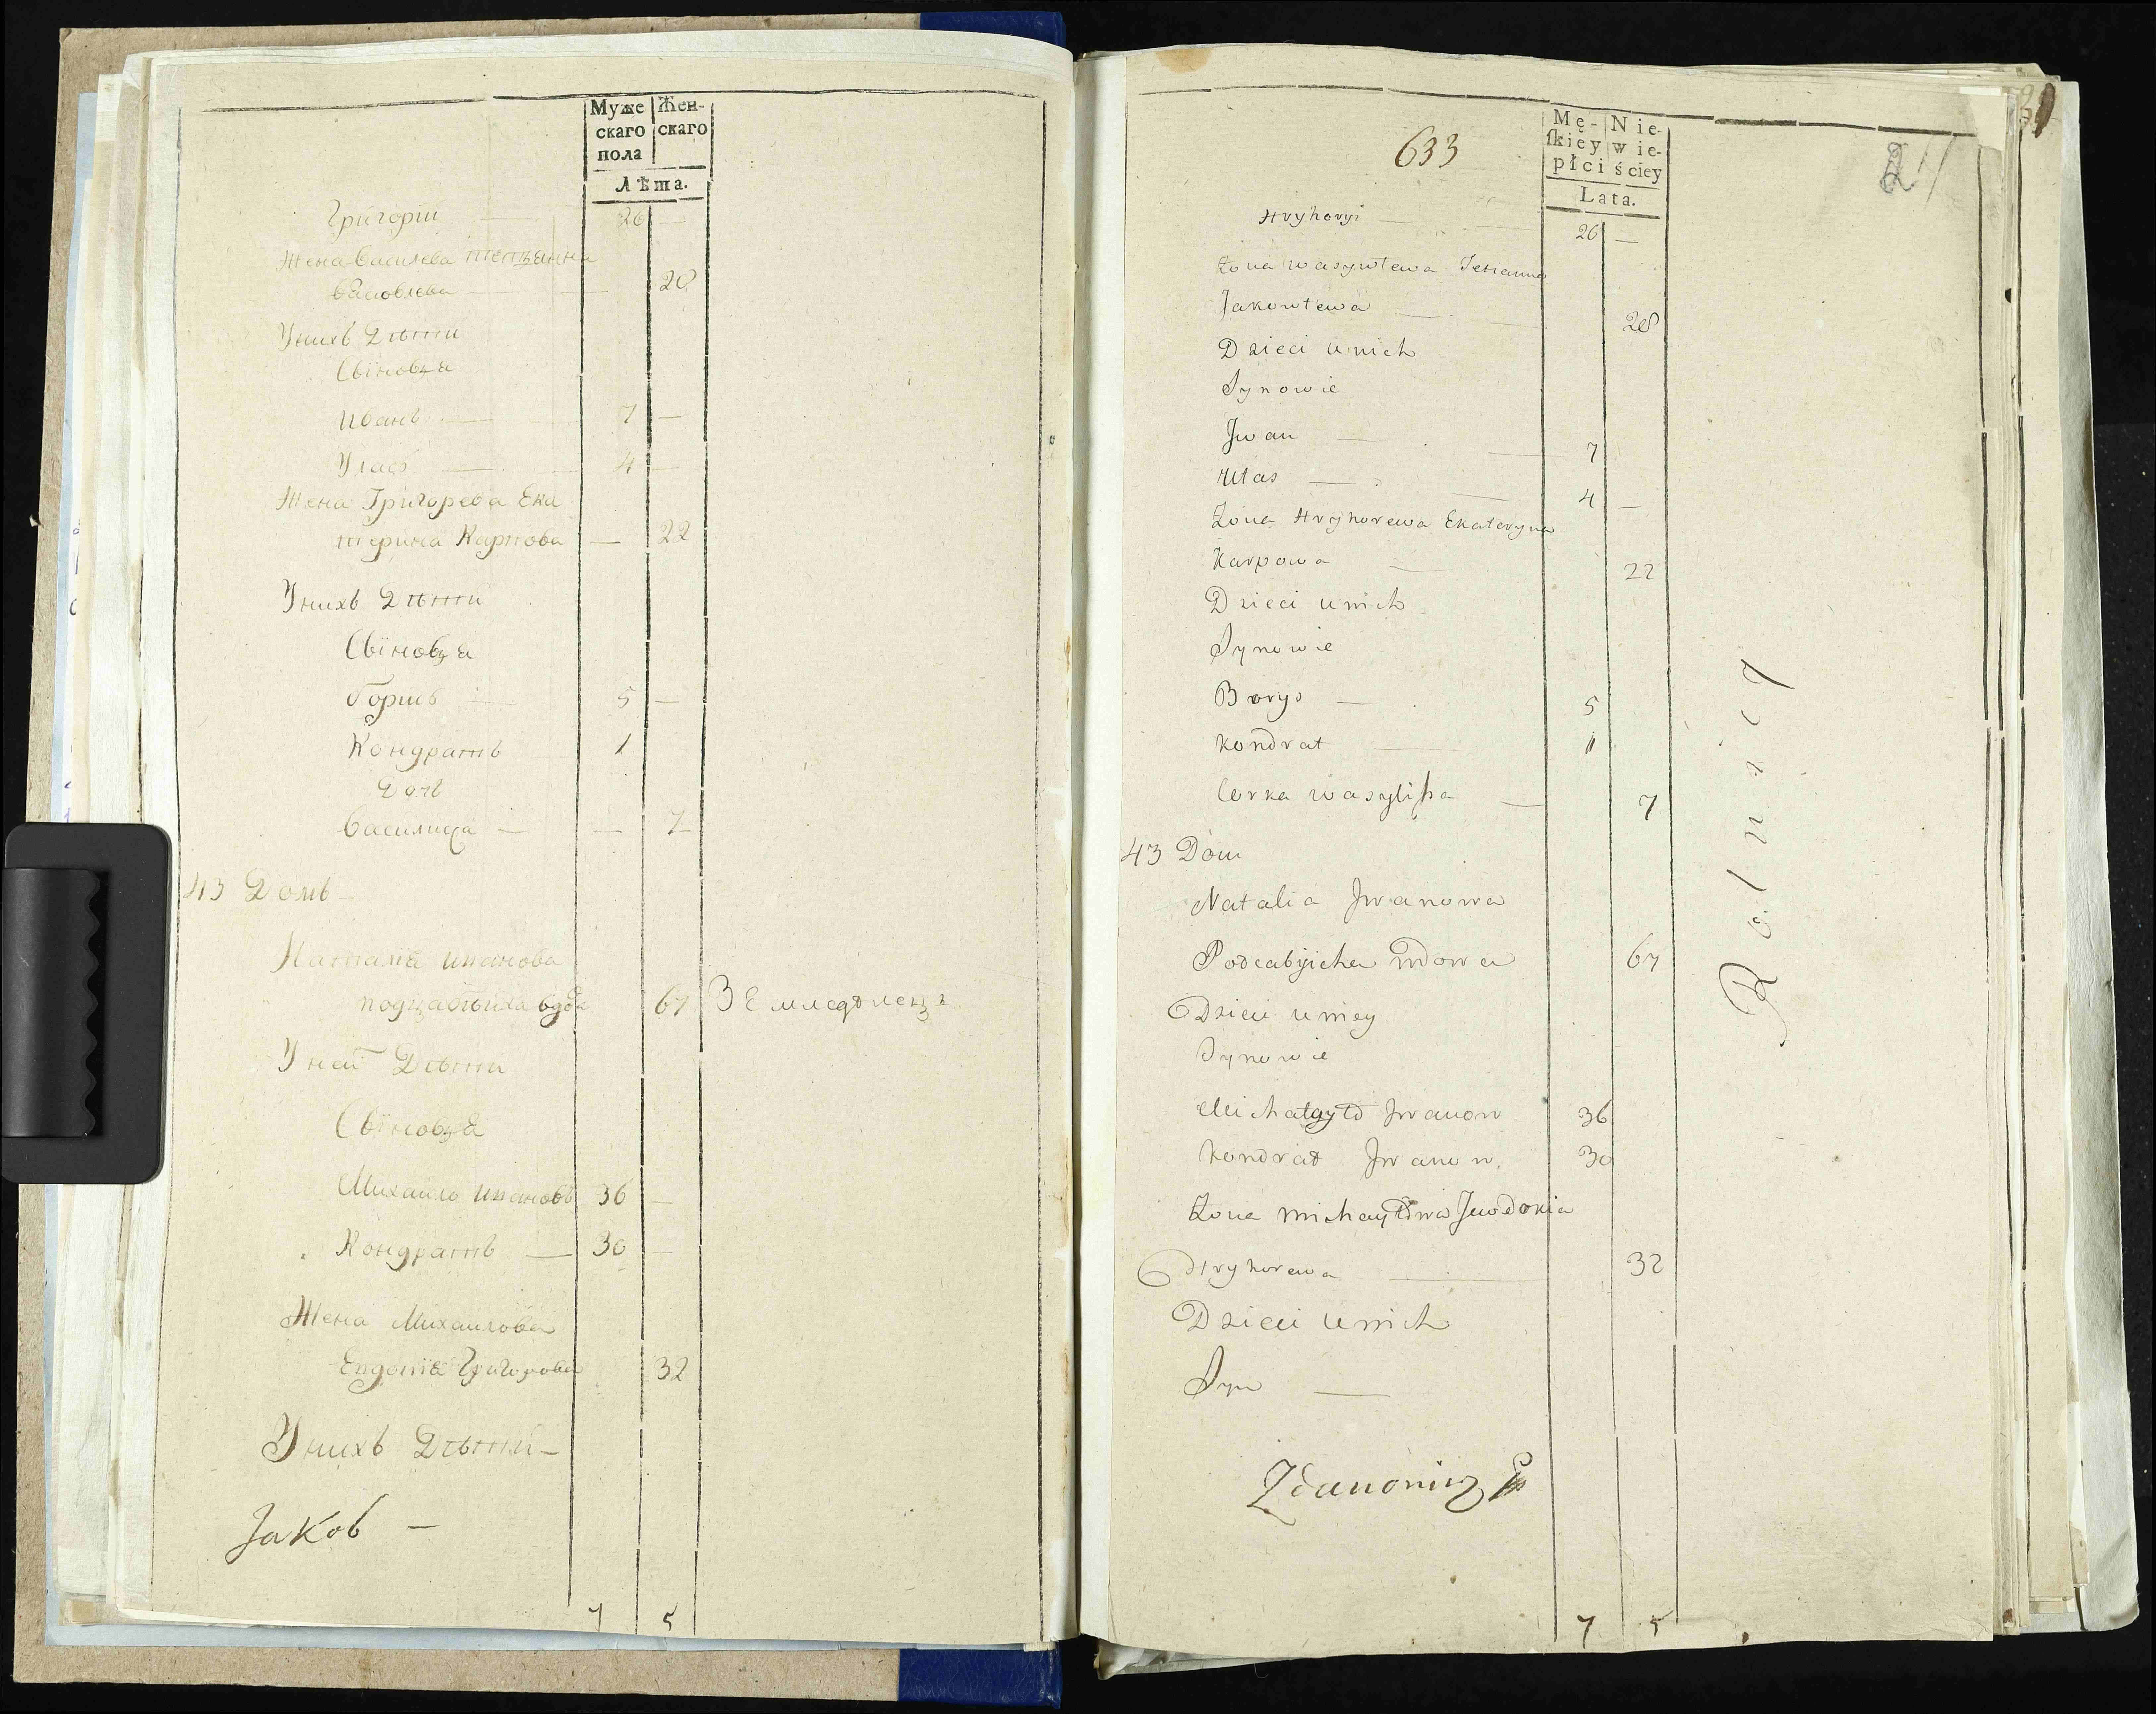 Муже Жен-
скаго скаго
пола
Лѣта.
Григорій 26 —
Жена Василева
Яковлева 28
Унихъ Дѣти
Сыновья
Иванъ — 7 —
Улас — 4 —
Жена Григорева Ека
терина Карпова — 22
Унихъ Дѣти
Сыновья
Борисъ 5 —
Кондратъ 1
Дочь
Василиса — — 7
43 Домъ —
Наталия Иванова
подцабѣиха вдова 67 Земледѣлецъ
У ней Дѣти
Сыновья
Михаило Ивановъ 36 —
Кондратъ — 30 —
Жена Михаилова
Евдокия Григорова 32
Унихъ Дѣти —
Jаков —
7 5
633
21
Mę- Nie-
ſkiey wie-
płci ściey
Lata.
Hryhoryi — 26 —
Żona wasywlewa Tetianna
Jakowlewa — 28
Dzieci unich
Synowie
Jwan — 7
Ułas — 4 —
Żona Hryhorewa Ekateryna
Karpowa — 22
Dzieci unich
Synowie
Borys — 5
Kondrat — 1
Corka wasylissa — 7
43 Dom
Natalia Jwanowa
Podcabyicha wdowa 67
Dzieci uniey
Synowie
Jwanow 36
Kondrat Jwanow 30
Żona michayłowa Jewdokia
Hryhorewa — 32
Dzieci unich
Syn —
Rolnicy
Zdanowicz
7 5